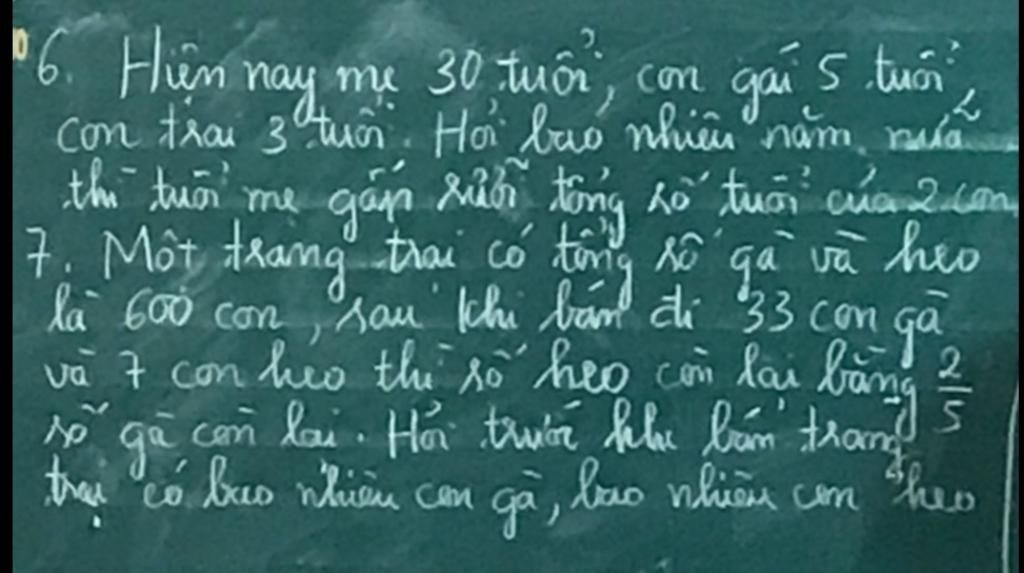 6. Hiện nay mẹ 30 tuổi, con gái 5 tuổi,
con trai 3 tuổi. Hỏi bao nhiêu năm nữa
thì tuổi mẹ gấp rưỡi tổng số tuổi của 2 con
7. Một trang trại có tổng số gà và heo
là 600 con, sau khi bán đi 33 con gà
và 7 con heo thì số heo còn lại bằng 2/5
số gà còn lại. Hỏi trước khi bán trang
trại có bao nhiêu con gà, bao nhiêu con heo